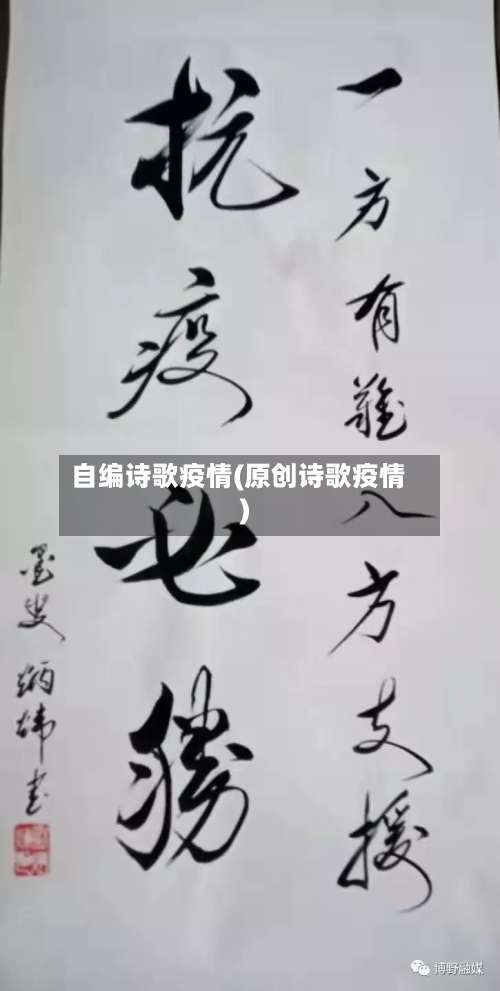 一方有難八方支援
抗疫必勝
墨叟炳炜书
自编诗歌疫情(原创诗歌疫情
)
博野融媒